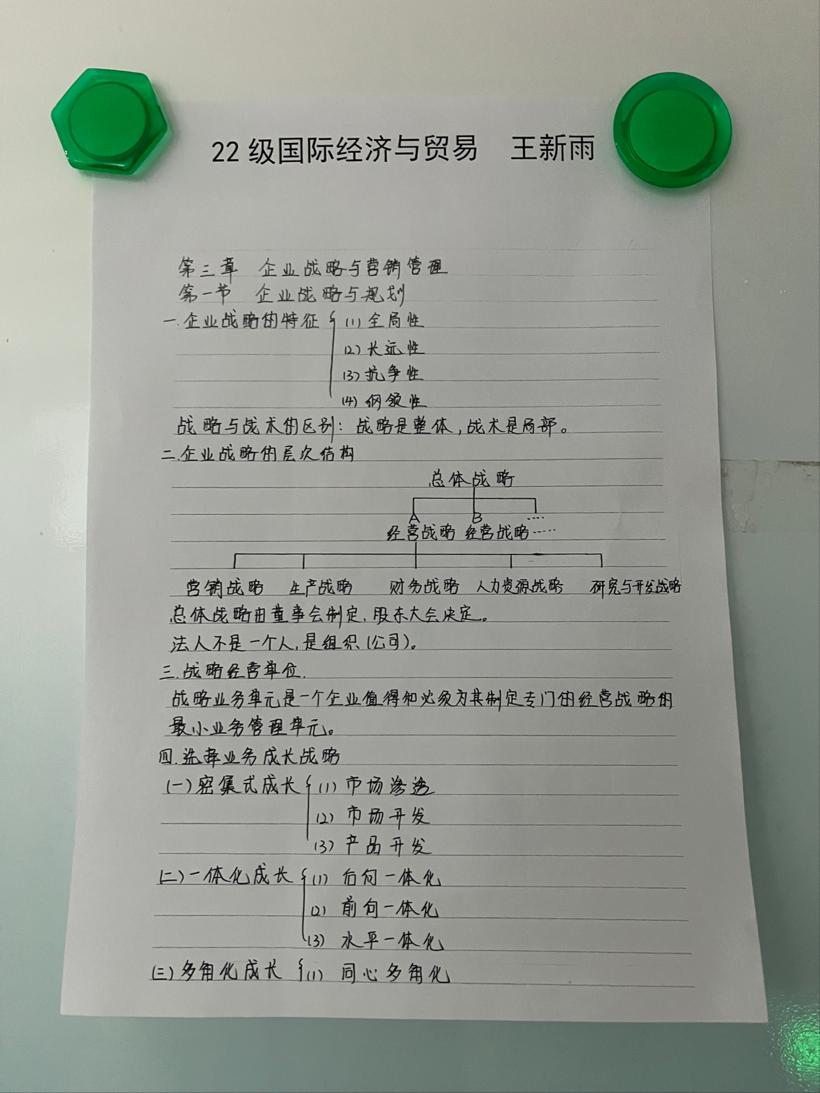 22级国际经济与贸易 王新雨
第三章 企业战略与营销管理
第一节 企业战略与规划
一.企业战略的特征 (1)全局性
(2)长远性
(3)抗争性
(4)纲领性
战略与战术的区别：战略是整体，战术是局部。
二.企业战略的层次结构
总体战略
A B ....
经营战略 经营战略 ......
营销战略 生产战略 财务战略 人力资源战略 研究与开发战略
总体战略由董事会制定，股东大会决定。
法人不是一个人，是组织（公司）。
三.战略经营单位.
战略业务单元是一个企业值得和必须为其制定专门的经营战略的
最小业务管理单元。
四.选择业务成长战略
(一)密集式成长 (1)市场渗透
(2)市场开发
(3)产品开发
(二)一体化成长 (1)后向一体化
(2)前向一体化
(3)水平一体化
(三)多角化成长 (1)同心多角化